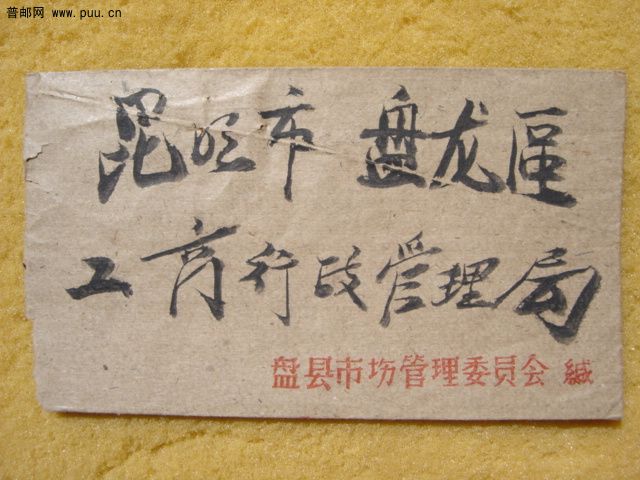 普邮网 www.puu.cn
昆明市 盘龙區
工商行政管理局
盘县市场管理委员会 缄